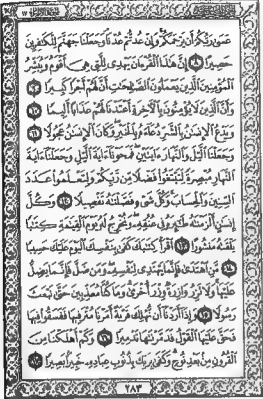 عَسَىٰ رَبُّكُمْ أَن يَرْحَمَكُمْ وَإِنْ عُدتُّمْ عُدْنَا وَجَعَلْنَا جَهَنَّمَ لِلْكَٰفِرِينَ
حَصِيرًا ٨ إِنَّ هَٰذَا ٱلْقُرْءَانَ يَهْدِى لِلَّتِى هِىَ أَقْوَمُ وَيُبَشِّرُ
ٱلْمُؤْمِنِينَ ٱلَّذِينَ يَعْمَلُونَ ٱلصَّٰلِحَٰتِ أَنَّ لَهُمْ أَجْرًا كَبِيرًا ٩
وَأَنَّ ٱلَّذِينَ لَا يُؤْمِنُونَ بِٱلْأَخِرَةِ أَعْتَدْنَا لَهُمْ عَذَابًا أَلِيمًا ١٠
وَيَدْعُ ٱلْإِنسَٰنُ بِٱلشَّرِّ دُعَآءَهُۥ بِٱلْخَيْرِ وَكَانَ ٱلْإِنسَٰنُ عَجُولًا ١١
وَجَعَلْنَا ٱلَّيْلَ وَٱلنَّهَارَ ءَايَتَيْنِ فَمَحَوْنَآ ءَايَةَ ٱلَّيْلِ وَجَعَلْنَآ ءَايَةَ
ٱلنَّهَارِ مُبْصِرَةً لِّتَبْتَغُوا۟ فَضْلًا مِّن رَّبِّكُمْ وَلِتَعْلَمُوا۟ عَدَدَ
ٱلسِّنِينَ وَٱلْحِسَابَ وَكُلَّ شَىْءٍ فَصَّلْنَٰهُ تَفْصِيلًا ١٢ وَكُلَّ
إِنسَٰنٍ أَلْزَمْنَٰهُ طَٰٓئِرَهُۥ فِى عُنُقِهِۦ وَنُخْرِجُ لَهُۥ يَوْمَ ٱلْقِيَٰمَةِ كِتَٰبًا
يَلْقَىٰهُ مَنشُورًا ١٣ ٱقْرَأْ كِتَٰبَكَ كَفَىٰ بِنَفْسِكَ ٱلْيَوْمَ عَلَيْكَ حَسِيبًا
١٤ مَّنِ ٱهْتَدَىٰ فَإِنَّمَا يَهْتَدِى لِنَفْسِهِۦ وَمَن ضَلَّ فَإِنَّمَا يَضِلُّ
عَلَيْهَا وَلَا تَزِرُ وَازِرَةٌ وِزْرَ أُخْرَىٰ وَمَا كُنَّا مُعَذِّبِينَ حَتَّىٰ نَبْعَثَ
رَسُولًا ١٥ وَإِذَآ أَرَدْنَآ أَن نُّهْلِكَ قَرْيَةً أَمَرْنَا مُتْرَفِيهَا فَفَسَقُوا۟ فِيهَا
فَحَقَّ عَلَيْهَا ٱلْقَوْلُ فَدَمَّرْنَٰهَا تَدْمِيرًا ١٦ وَكَمْ أَهْلَكْنَا مِنَ
ٱلْقُرُونِ مِنۢ بَعْدِ نُوحٍ وَكَفَىٰ بِرَبِّكَ بِذُنُوبِ عِبَادِهِۦ خَبِيرًۢا بَصِيرًا ١٧
٢٨٣